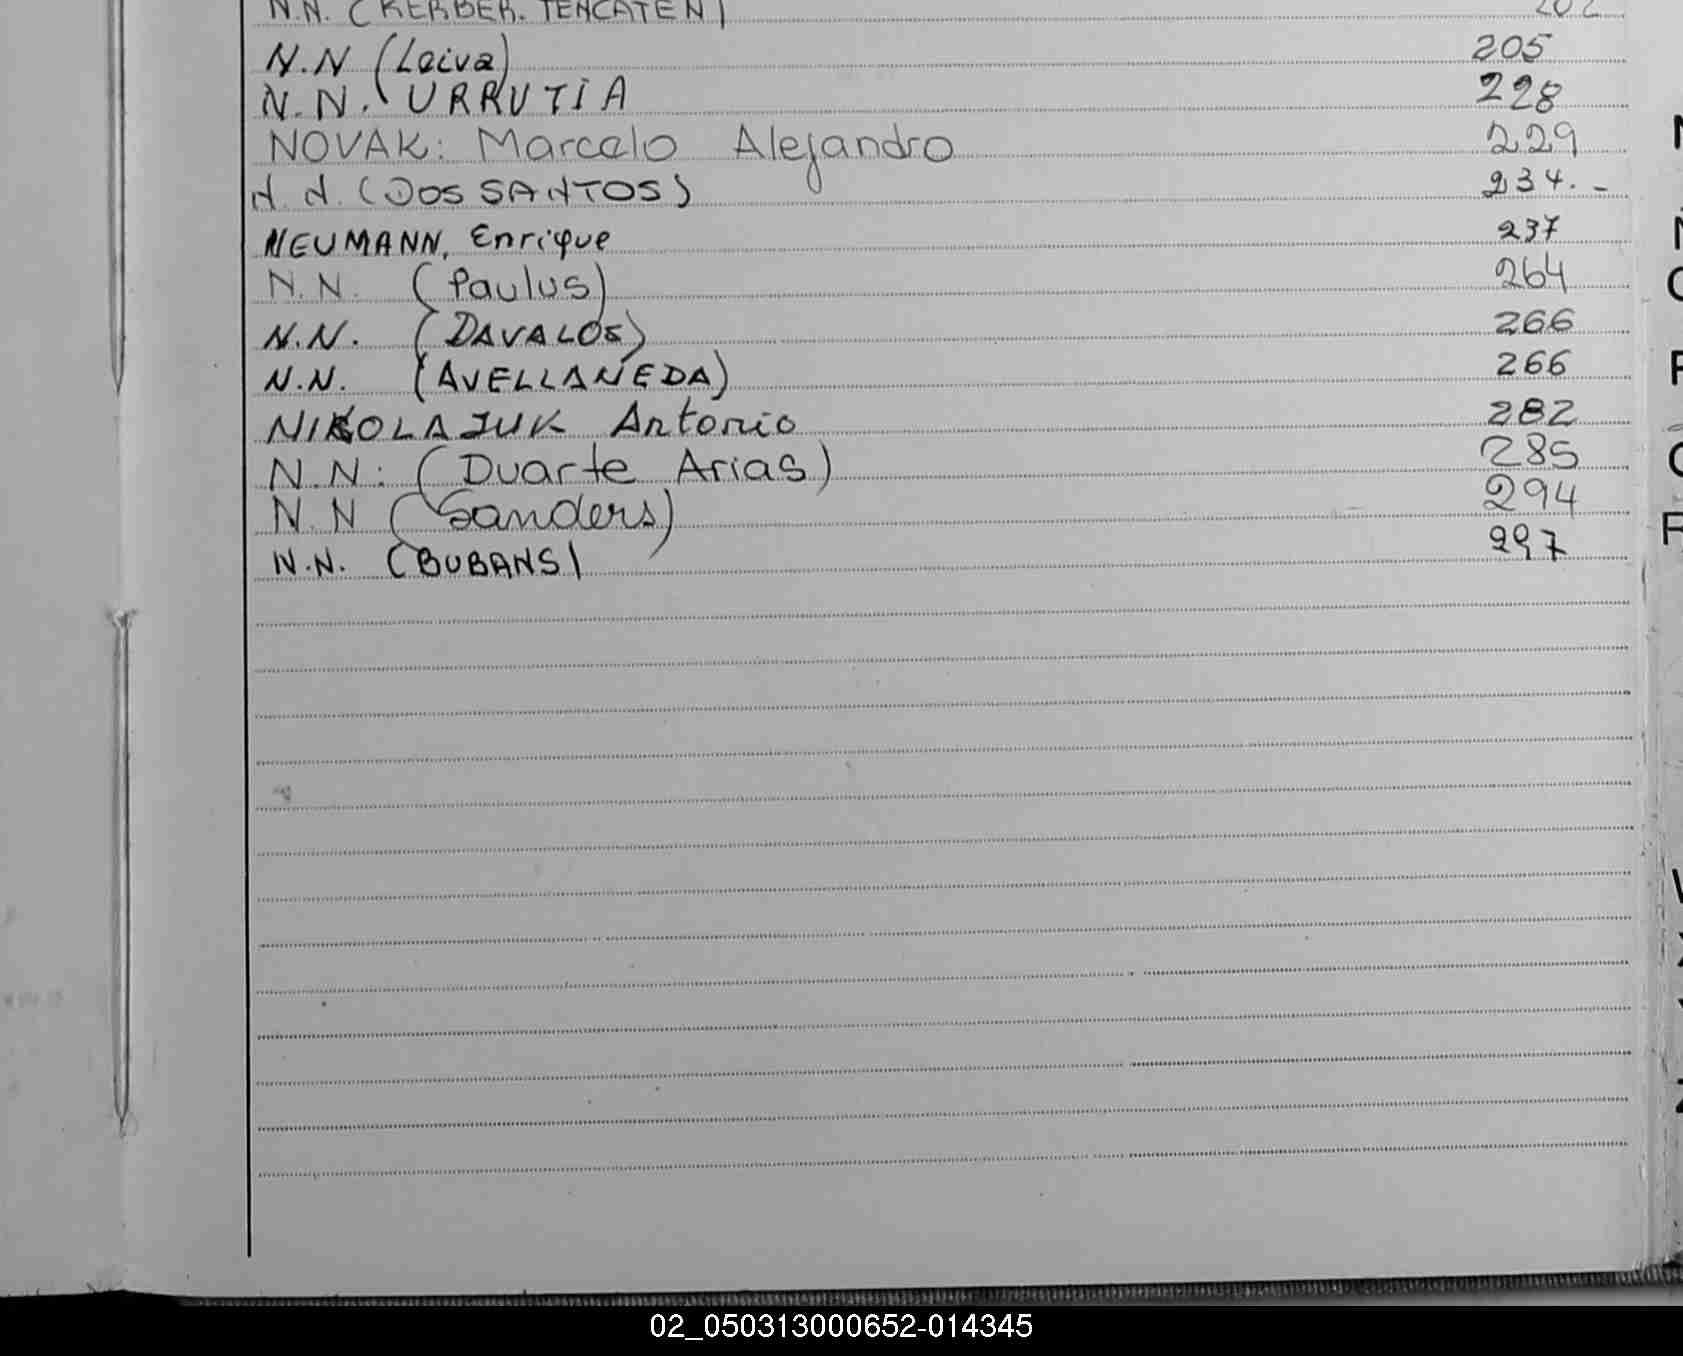 N.N. (KERBER. TENCATEN) 202
N.N (Leiva) 205
N.N. URRUTIA 228
NOVAK: Marcelo Alejandro 229
N.N. (DOS SANTOS) 234.-
NEUMANN, Enrique 237
N.N. (Paulus) 264
N.N. (DAVALOS) 266
N.N. (AVELLANEDA) 266
NIKOLAJUK Antonio 282
N.N: (Duarte Arias) 285
N.N (Sanders) 294
N.N. (BUBANS) 297
02_050313000652-014345